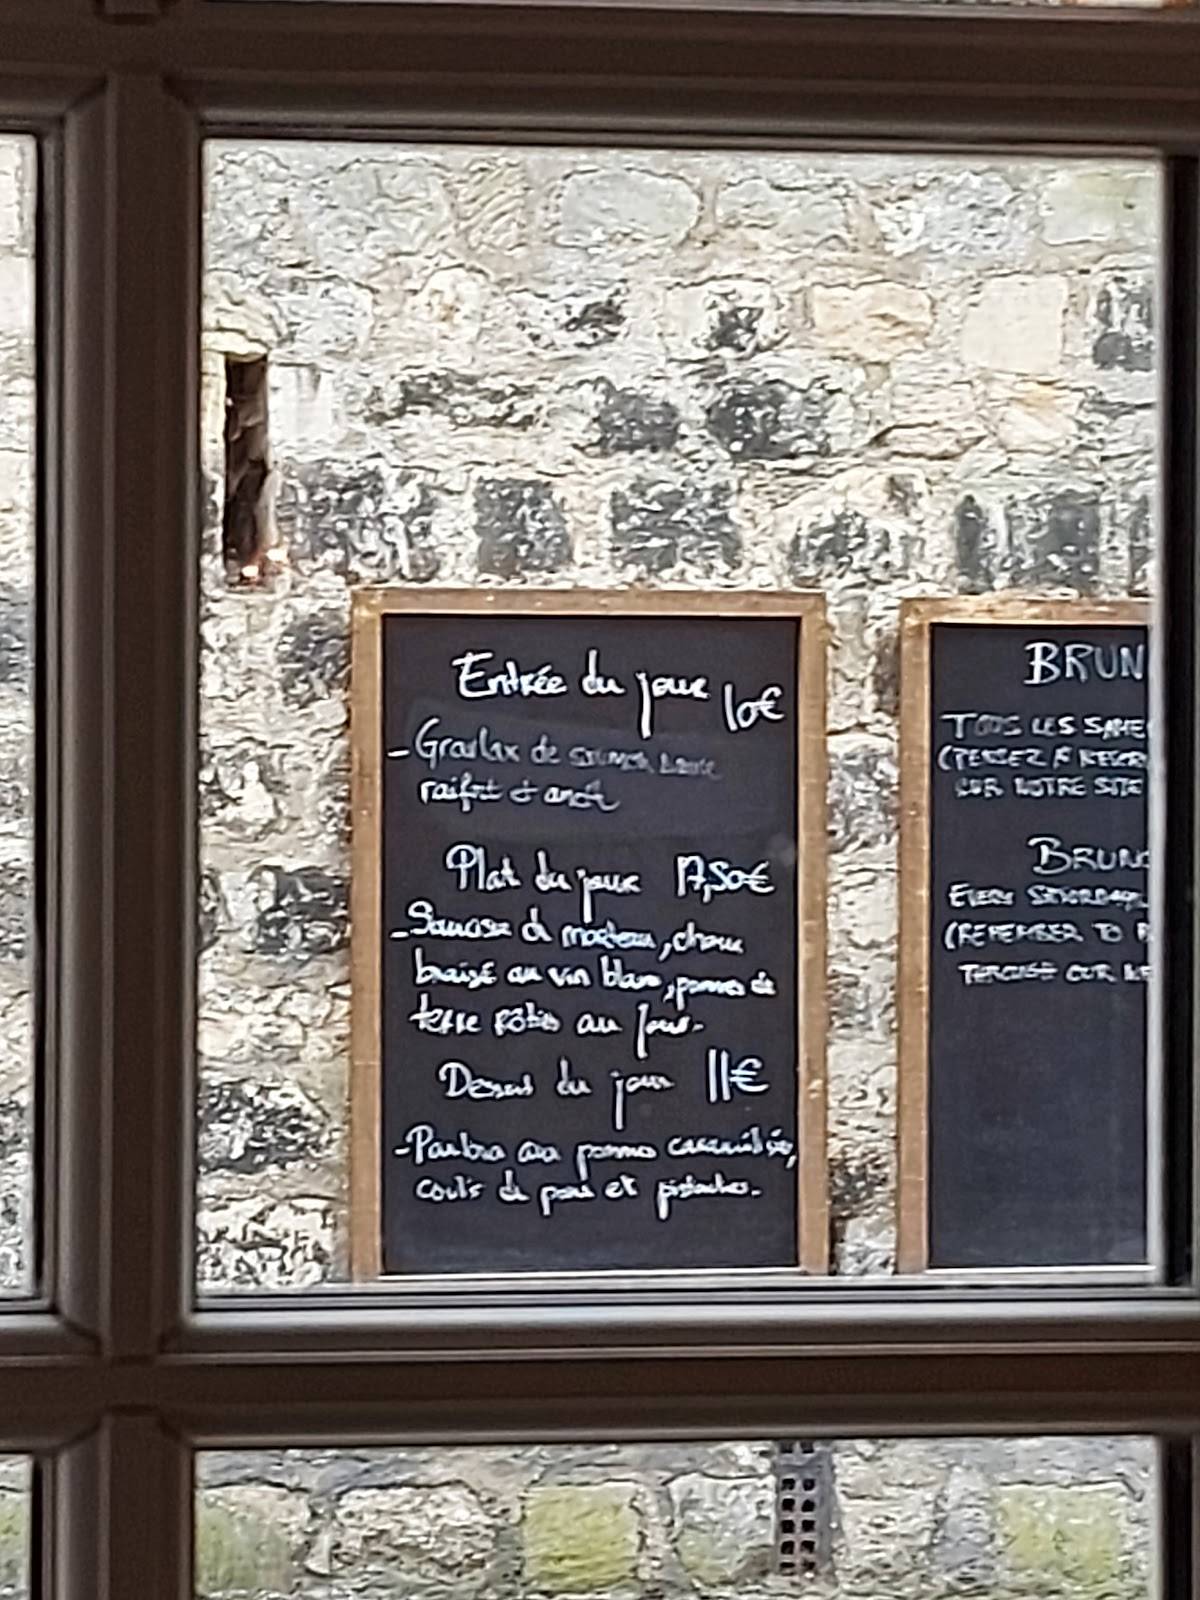 Entrée du jour 10€
- Gravlax de saumon, sauce
raifort & aneth
Plat du jour 17,50€
- Saucisse de morteau, choux
braisé au vin blanc, pommes de
terre rôties au four.
Dessert du jour 11€
- Pavlova aux pommes caramélisées,
coulis de poire et pistaches.
BRUN
TOUS LES SAME
(PENSEZ À RÉSER
SUR NOTRE SITE
BRUNC
EVERY SATURDAY
(REMEMBER TO
THROUGH OUR WE